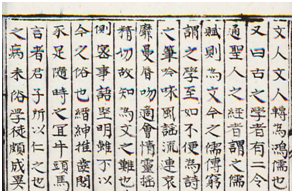 文人文人轉為鴻儒也
又曰古之學者有二今
通聖人之經者謂之儒
賦則為文今之儒傳窮
謂之學至如不便為詩
之筆吟咏風謠流連哀
靡曼脣吻適會情靈搖
精切故知為文之難也
事語堅明雖了以
今之俗也縉紳推齒閭
求足隨時之宜牛頭馬
言者君子所以仁之也
之病末俗學徒頗成巽